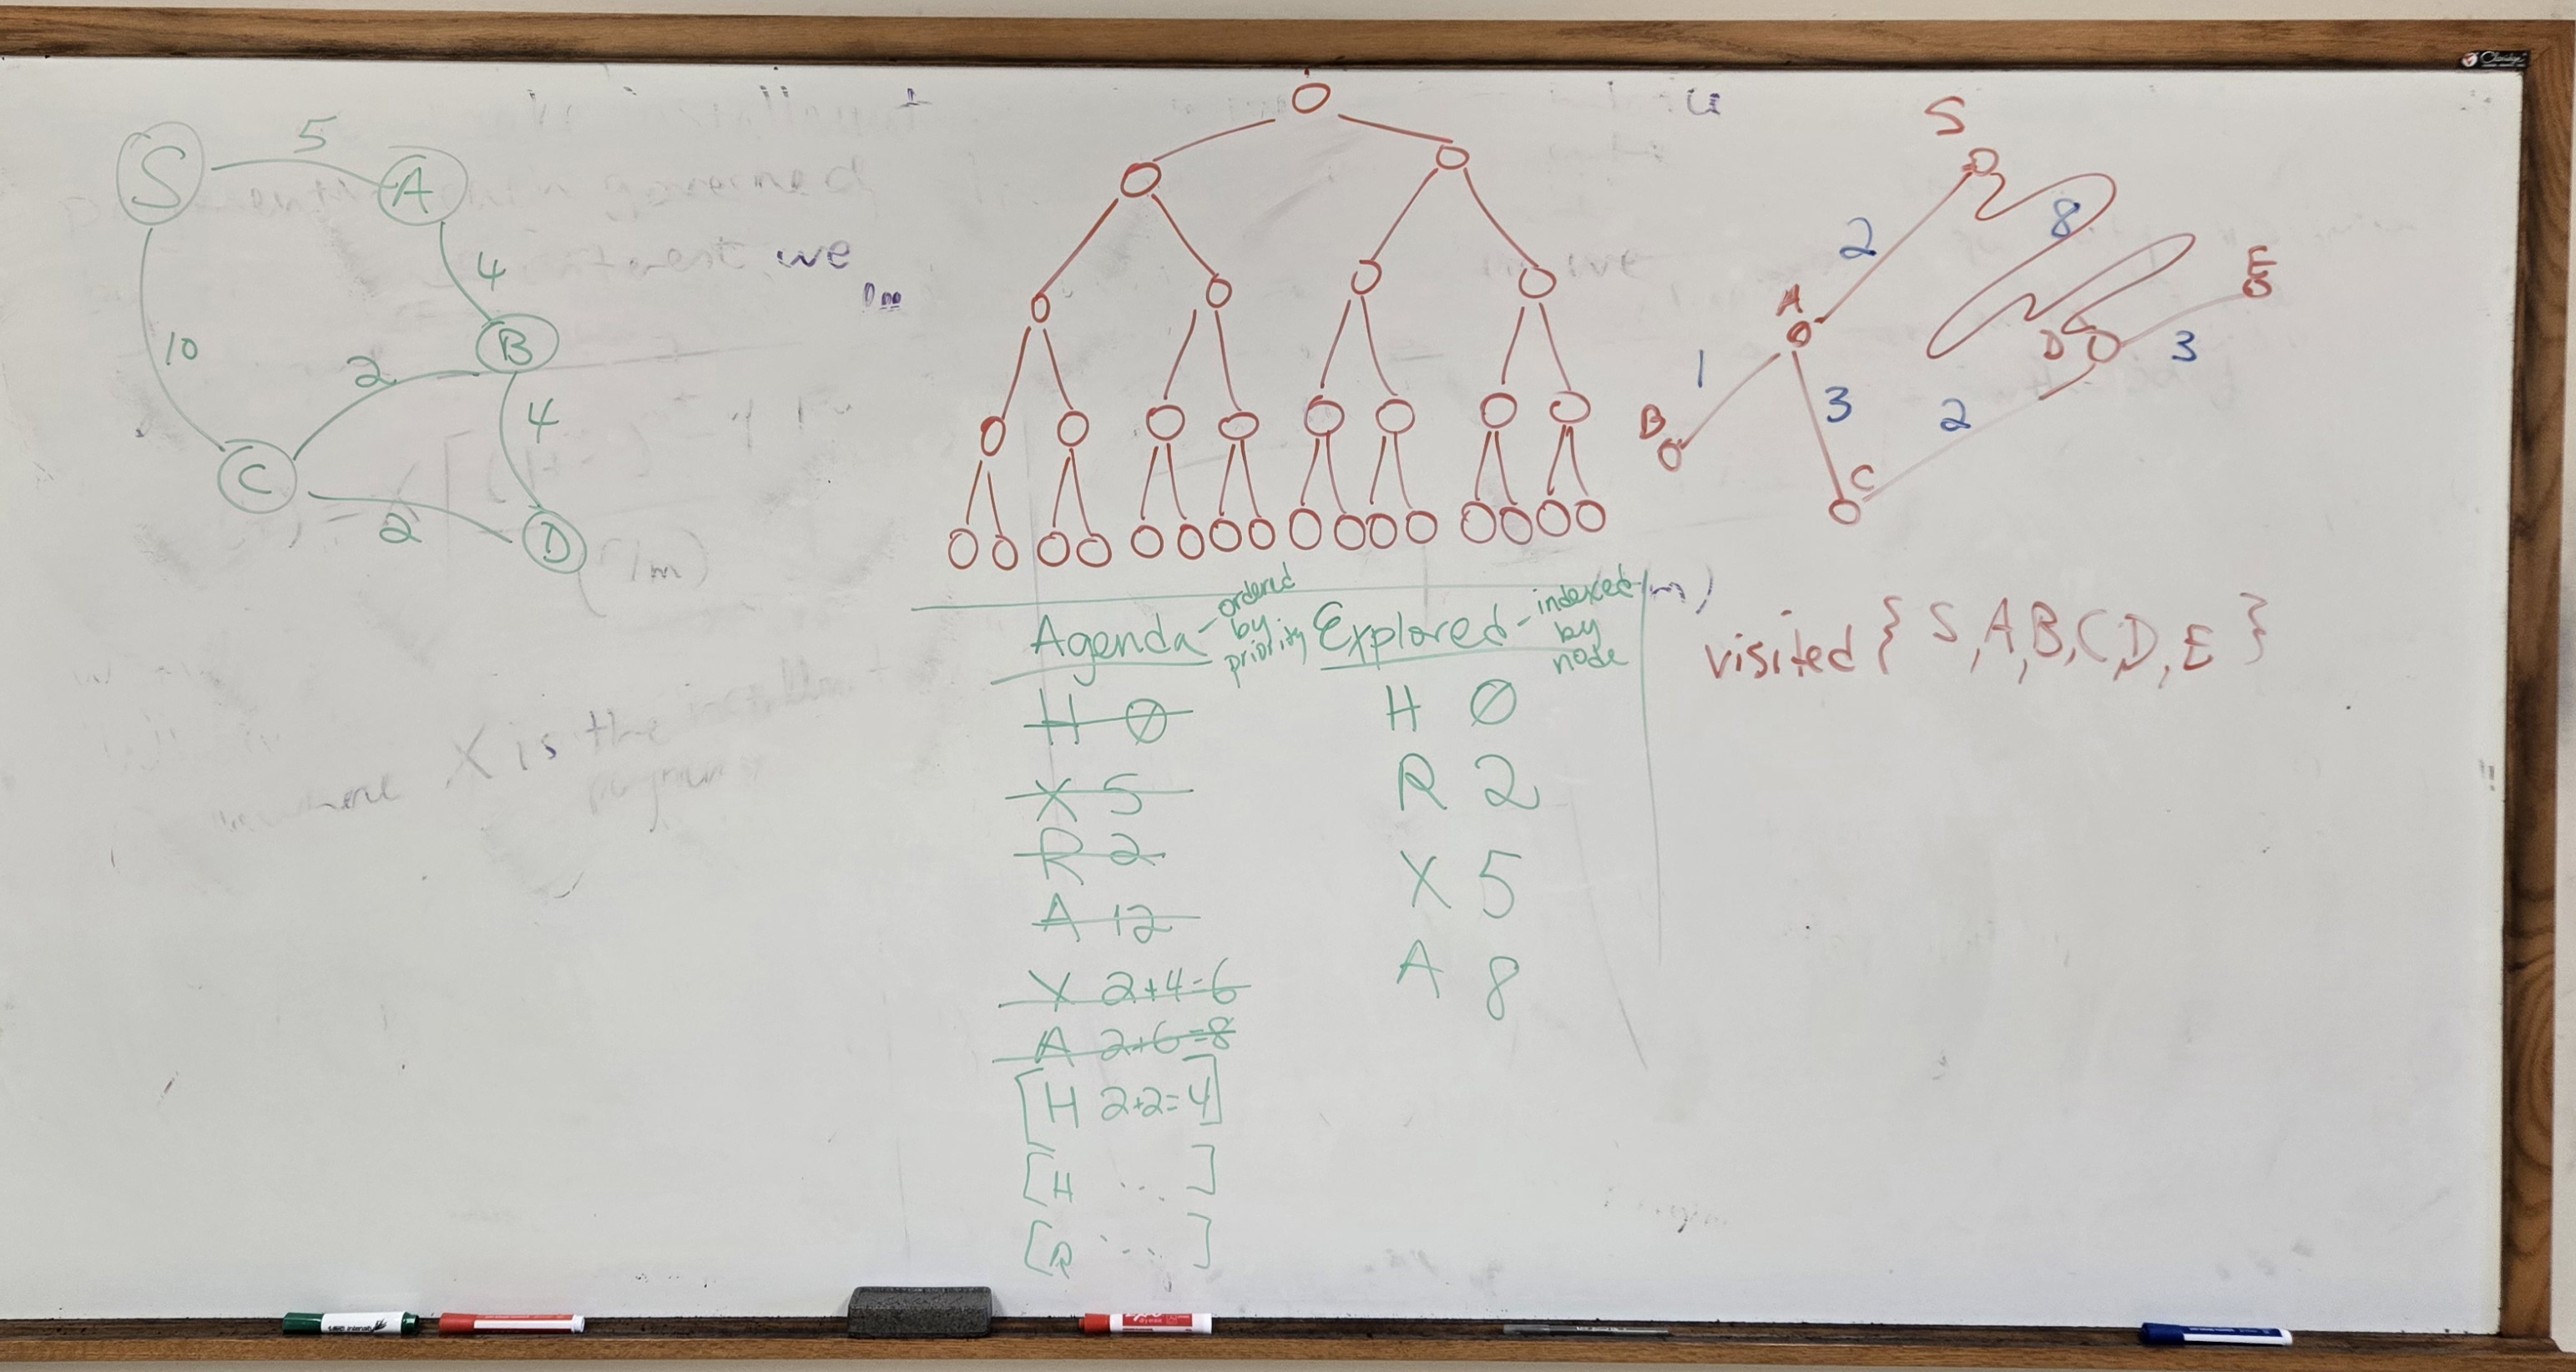 S
5
A
4
10
B
2
4
C
2
D
we
governed
X is the
S
2
8
A
E
D
3
1
3
B
2
C
Agenda - ordered by priority
Explored - indexed by node
H 0
X 5
R 2
A 12
X 2+4=6
A 2+6=8
[H 2+2=4]
[H ...]
[R ...]
H 0
R 2
X 5
A 8
visited { S, A, B, C, D, E }